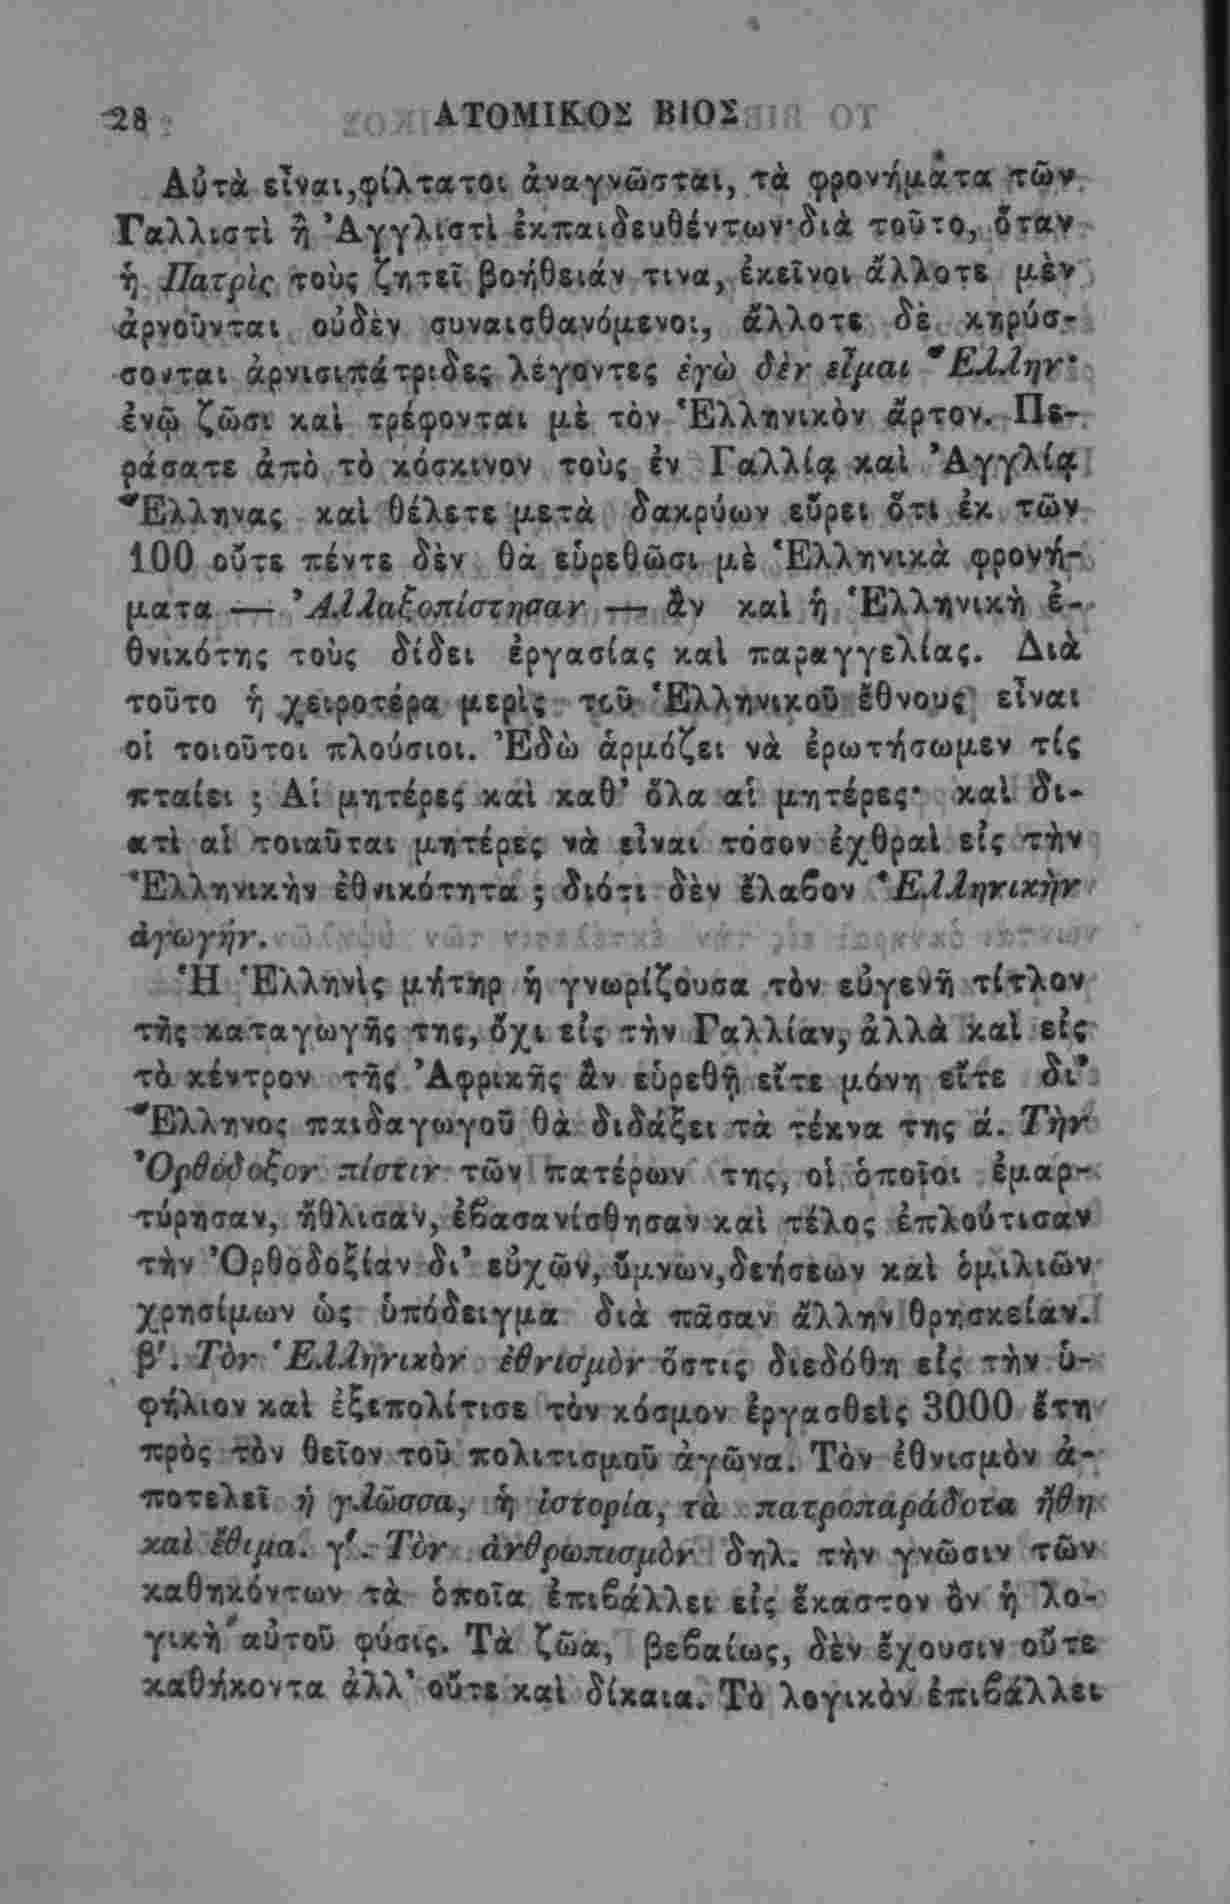 28 ΑΤΟΜΙΚΟΣ ΒΙΟΣ
Αὐτὰ εἶναι,φίλτατοι ἀναγνῶσται, τὰ φρονήματα τῶν
Γαλλιστὶ ἢ Ἀγγλιστὶ ἐκπαιδευθέντων· διὰ τοῦτο, ὅταν
ἡ Πατρὶς τοὺς ζητεῖ βοήθειάν τινα, ἐκεῖνοι ἄλλοτε μὲν
ἀρνοῦνται οὐδὲν συναισθανόμενοι, ἄλλοτε δὲ κηρύσ-
σονται ἀρνισιπάτριδες λέγοντες ἐγὼ δὲν εἶμαι Ἕλλην·
ἐνῷ ζῶσι καὶ τρέφονται μὲ τὸν Ἑλληνικὸν ἄρτον. Πε-
ράσατε ἀπὸ τὸ κόσκινον τοὺς ἐν Γαλλίᾳ καὶ Ἀγγλίᾳ
Ἕλληνας καὶ θέλετε μετὰ δακρύων εὕρει ὅτι ἐκ τῶν
100 οὔτε πέντε δὲν θὰ εὑρεθῶσι μὲ Ἑλληνικὰ φρονή-
ματα — Ἀλλαξοπίστησαν — ἂν καὶ ἡ Ἑλληνικὴ ἐ-
θνικότης τοὺς δίδει ἐργασίας καὶ παραγγελίας. Διὰ
τοῦτο ἡ χειροτέρα μερὶς τοῦ Ἑλληνικοῦ ἔθνους εἶναι
οἱ τοιοῦτοι πλούσιοι. Ἐδὼ ἁρμόζει νὰ ἐρωτήσωμεν τίς
πταίει ; Αἱ μητέρες καὶ καθ' ὅλα αἱ μητέρες· καὶ δι-
ατὶ αἱ τοιαῦται μητέρες νὰ εἶναι τόσον ἐχθραὶ εἰς τὴν
Ἑλληνικὴν ἐθνικότητα ; διότι δὲν ἔλαβον Ἑλληνικὴν
ἀγωγήν.
Ἡ Ἑλληνὶς μήτηρ ἡ γνωρίζουσα τὸν εὐγενῆ τίτλον
τῆς καταγωγῆς της, ὄχι εἰς τὴν Γαλλίαν, ἀλλὰ καὶ εἰς
τὸ κέντρον τῆς Ἀφρικῆς ἂν εὑρεθῇ εἴτε μόνη εἴτε δι'
Ἕλληνος παιδαγωγοῦ θὰ διδάξει τὰ τέκνα της ά. Τὴν
Ὀρθόδοξον πίστιν τῶν πατέρων της, οἱ ὁποῖοι ἐμαρ-
τύρησαν, ἤθλισαν, ἐβασανίσθησαν καὶ τέλος ἐπλούτισαν
τὴν Ὀρθοδοξίαν δι' εὐχῶν, ὕμνων,δεήσεων καὶ ὁμιλιῶν
χρησίμων ὡς ὑπόδειγμα διὰ πᾶσαν ἄλλην θρησκείαν.
β'. Τὸν Ἑλληνικὸν ἐθνισμὸν ὅστις διεδόθη εἰς τὴν ὑ-
φήλιον καὶ ἐξεπολίτισε τὸν κόσμον ἐργασθεὶς 3000 ἔτη
πρὸς τὸν θεῖον τοῦ πολιτισμοῦ ἀγῶνα. Τὸν ἐθνισμὸν ἀ-
ποτελεῖ ἡ γλῶσσα, ἡ ἱστορία, τὰ πατροπαράδοτα ἤθη
καὶ ἔθιμα. γ'. Τὸν ἀνθρωπισμὸν δηλ. τὴν γνῶσιν τῶν
καθηκόντων τὰ ὁποῖα ἐπιβάλλει εἰς ἕκαστον ὂν ἡ λο-
γικὴ αὐτοῦ φύσις. Τὰ ζῶα, βεβαίως, δὲν ἔχουσιν οὔτε
καθήκοντα ἀλλ' οὔτε καὶ δίκαια. Τὸ λογικὸν ἐπιβάλλει